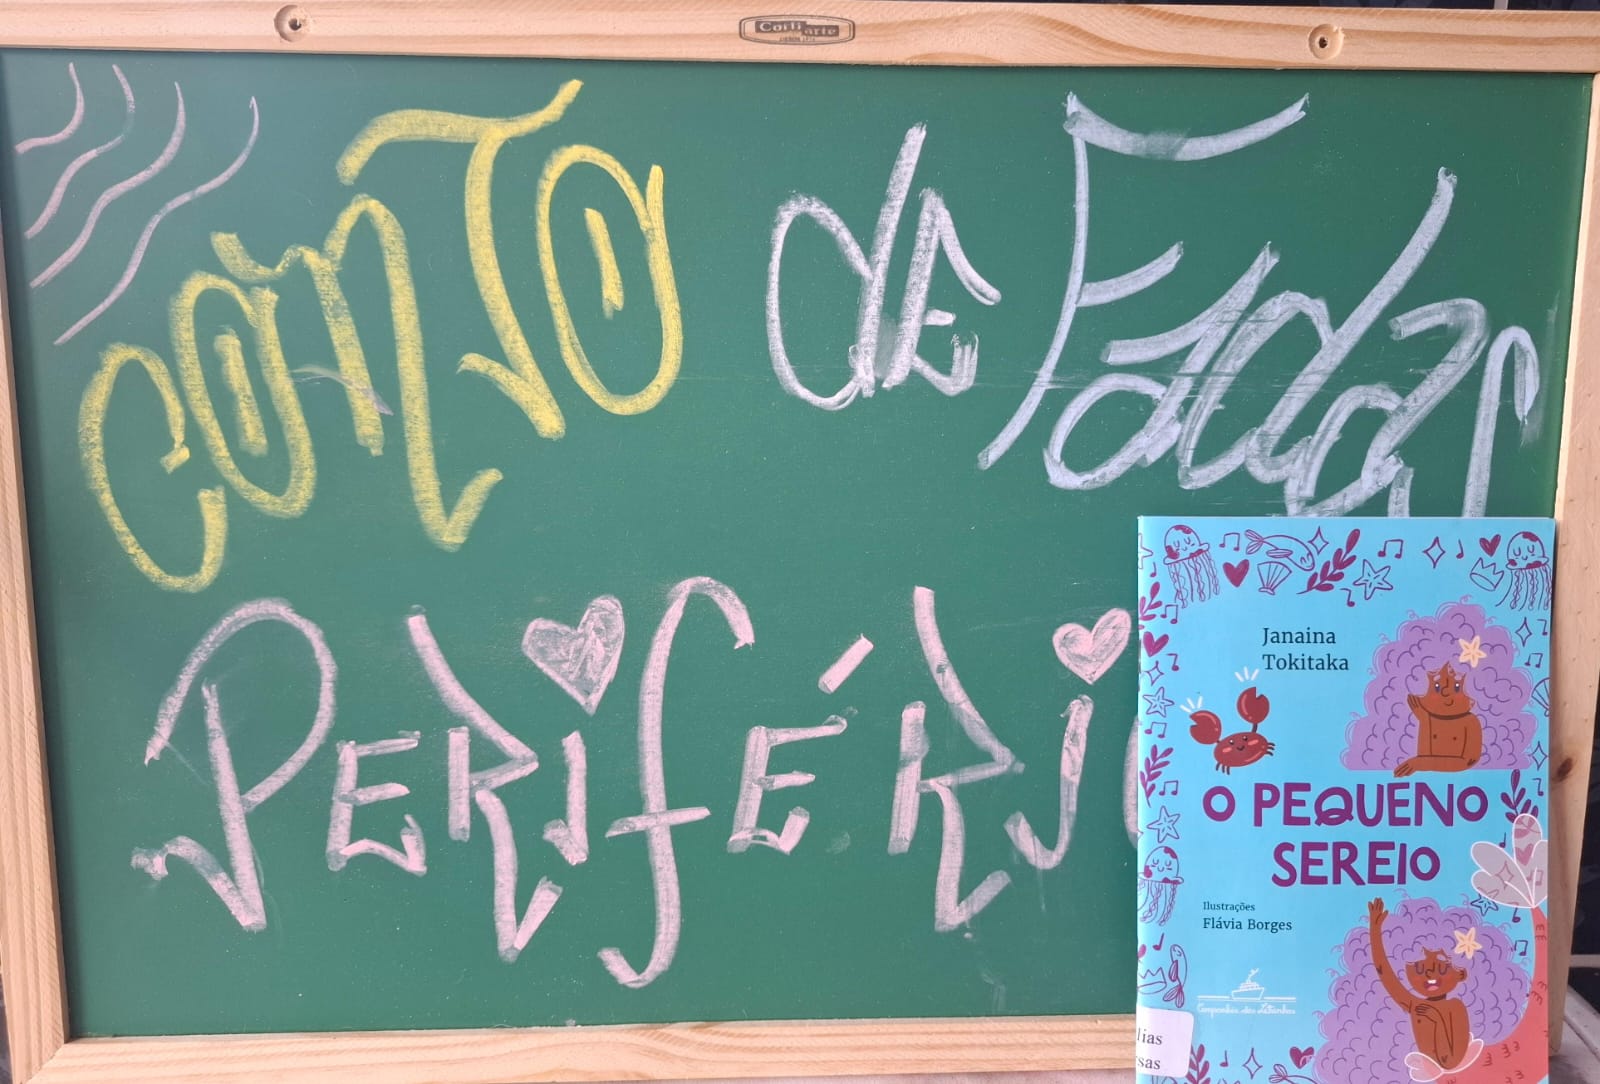 Coiliarte
CONTO de Fadas
PERiFÉRiC
Janaina
Tokitaka
O PEQUENO
SEREIO
Ilustrações
Flávia Borges
Companhia das Letrinhas
lias
sas